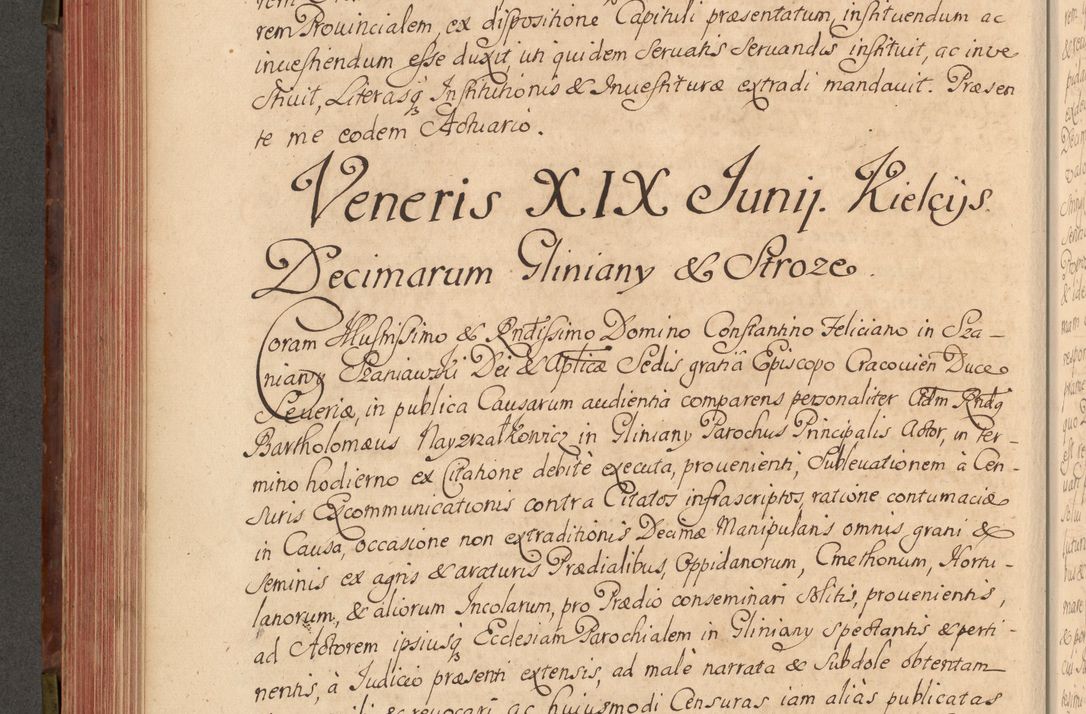 rem Provincialem, ex dispositione Capituli præsentatum, instituendum ac
investiendum esse duxit, uti quidem servatis servandis instituit, ac inve
stivit, Literasq3 Institutionis & Investituræ extradi mandavit. Præsen
te me eodem Actuario.
Veneris XIX Junij. Kielcijs.
Decimarum Gliniany & Stroze.
Coram Illustrissimo & Rndissimo Domino Constantino Feliciano in Sza–
niawy Szaniawski Dei & Aplicæ Sedis gratia Episcopo Cracovien Duce
Severiæ, in publica Causarum audientia comparens personaliter Adm Rndg
Bartholomæus Nayzrzałkowicz in Gliniany Parochus Principalis Actor, in ter–
mino hodierno ex Citatione debitè executa, provenienti, Sublevationem à Cen–
suris Excommunicationis contra Citatos infrascriptos, ratione contumaciæ
in Causa, occasione non extraditionis Decimæ Manipularis omnis grani &
seminis ex agris & araturis Prædialibus, Oppidanorum, Cmethonum, Hortu–
lanorum, & aliorum Incolarum, pro Prædio conseminari solitis, provenientis,
ad Actorem ipsiusq3 Ecclesiam Parochialem in Gliniany spectantis & perti–
nentis, à Judicio præsenti extensis, ad malè narrata & subdole obtentam
& revocari ac huiusmodi Censuras iam aliàs publicatas